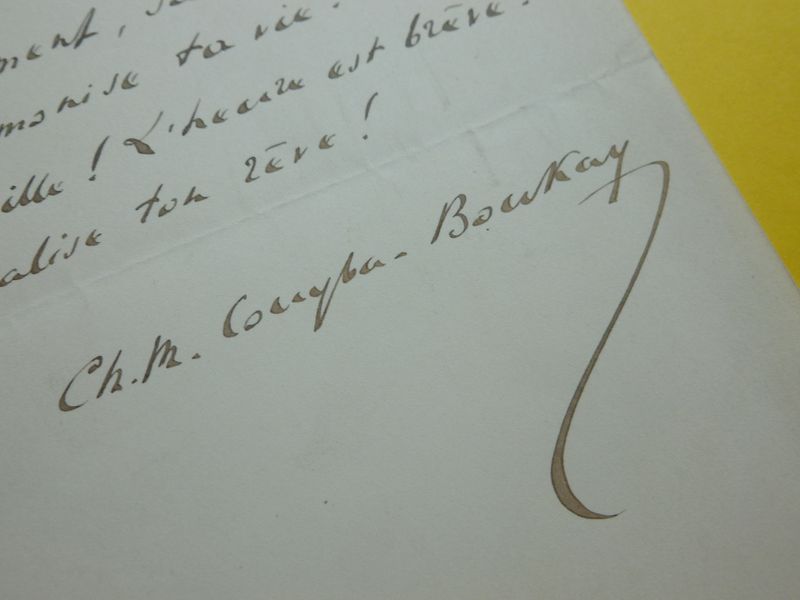 ment,
monise ta vie.
ille ! L'heure est brève !
alise ton rêve !
Ch. M. Couyba - Boukay